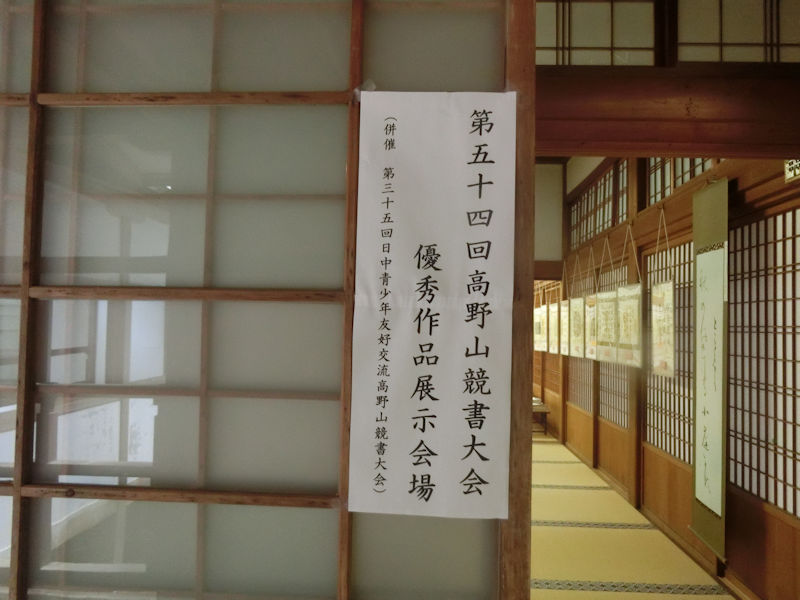 第五十四回高野山競書大会
優秀作品展示会場
（併催　第三十五回日中青少年友好交流高野山競書大会）